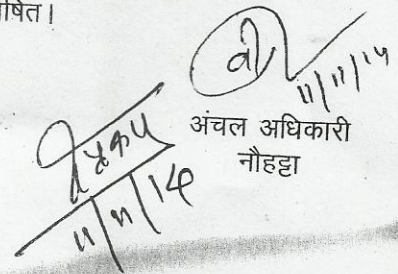 षित।
11/11/14
अंचल अधिकारी
नौहट्टा
11/11/14